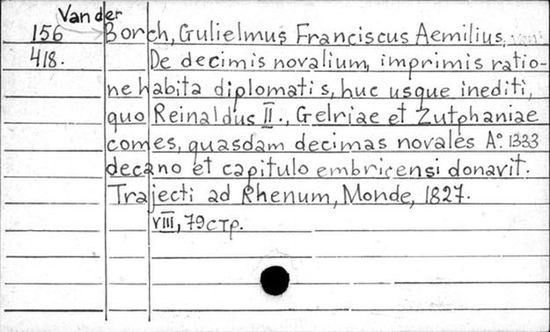 Van der
156 Borch, Gulielmus Franciscus Aemilius,
418. De decimis novalium, imprimis ratio-
ne habita diplomatis, huc usque inediti,
quo Reinaldus II., Gelriae et Zutphaniae
comes, quasdam decimas novales Aº 1333
decano et capitulo embricensi donavit.
Trajecti ad Rhenum, Monde, 1827.
VIII, 79 стр.